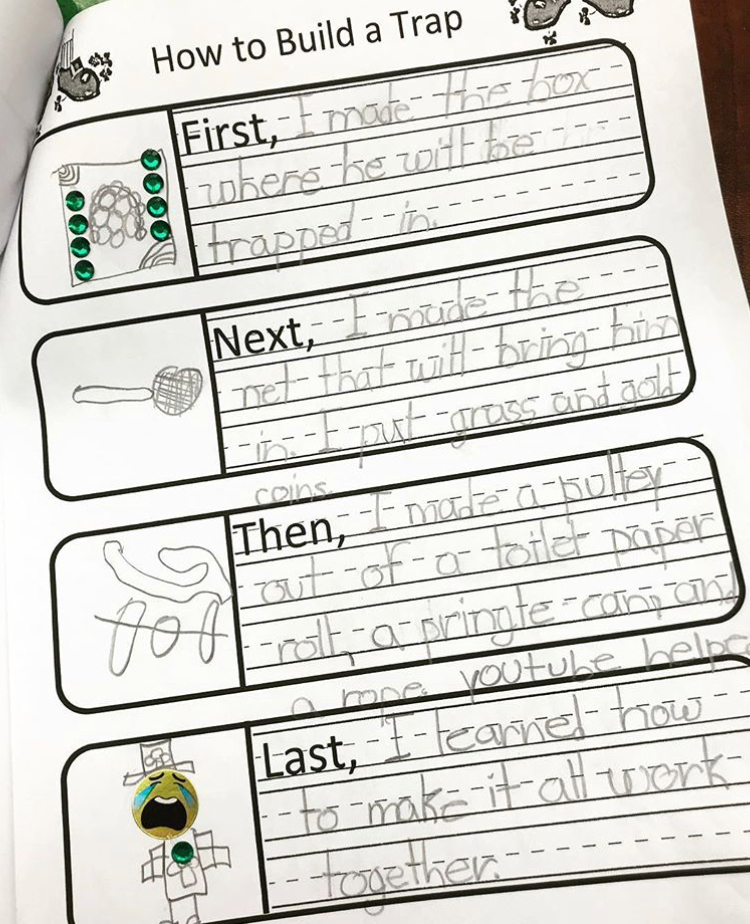 How to Build a Trap
First, I made the box
where he will be
trapped in.
Next, I made the
net that will bring him
in. I put grass and gold
coins.
Then, I made a pulley
out of a toilet paper
roll, a pringle can, and
a rope. youtube helpe
Last, I learned how
to make it all work
together.